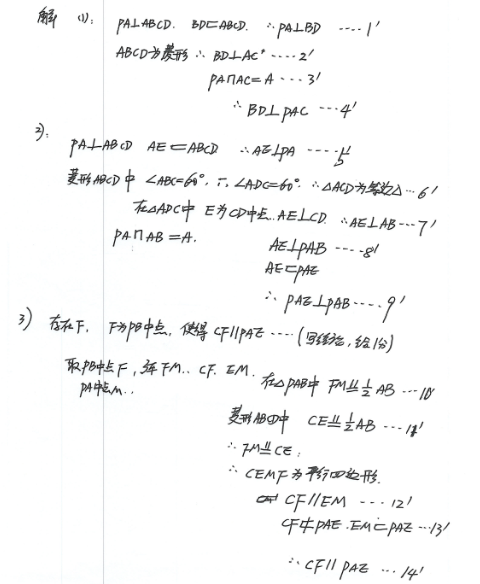 解 (1): PA⊥ABCD. BD⊂ABCD. ∴PA⊥BD ····1'
ABCD为菱形 ∴ BD⊥AC ····2'
PA∩AC=A ···3'
∴ BD⊥PAC ···4'
2):
PA⊥ABCD AE⊂ABCD ∴AE⊥PA ····5'
菱形ABCD中 ∠ABC=60°, ∴∠ADC=60° ∴△ACD为等边△ ··6'
在△ADC中 E为CD中点. AE⊥CD. ∴AE⊥AB ···7'
PA∩AB=A. AE⊥PAB ····8'
AE⊂PAE
∴ PAE⊥PAB ····9'
3) 存在F, F为PB中点, 使得 CF∥PAE ····(写结论,给1分)
取PB中点F, 连FM.. CF. EM. 在△PAB中 FM∥=½AB ···10'
PA中点M..
菱形ABCD中 CE∥=½AB ···11'
∴ FM∥=CE.
∴ CEMF为平行四边形.
CF∥EM ···12'
CF⊄PAE. EM⊂PAE ···13'
∴ CF∥PAE ···14'